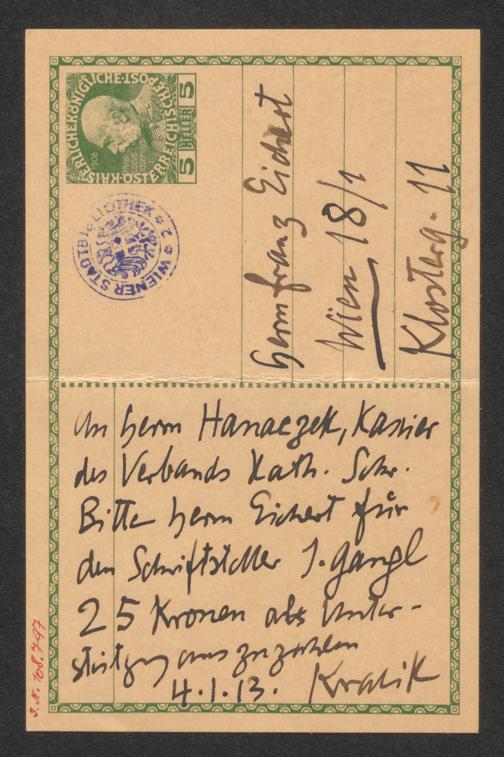 KAISERLICHEKÖNIGLICHE
ÖSTERREICHISCHEPOST
1908
5 HELLER 5
WIENER STADTBIBLIOTHEK
2
Herrn Franz Eichert
Wien 18/1
Klosterg. 11
An Herrn Hanaczek, Kassier
des Verbands Kath. Schr.
Bitte Herrn Eichert für
den Schriftsteller J. Gangl
25 Kronen als Unter-
stützung auszuzahlen
4.1.13. Kralik
J.N. 108.797